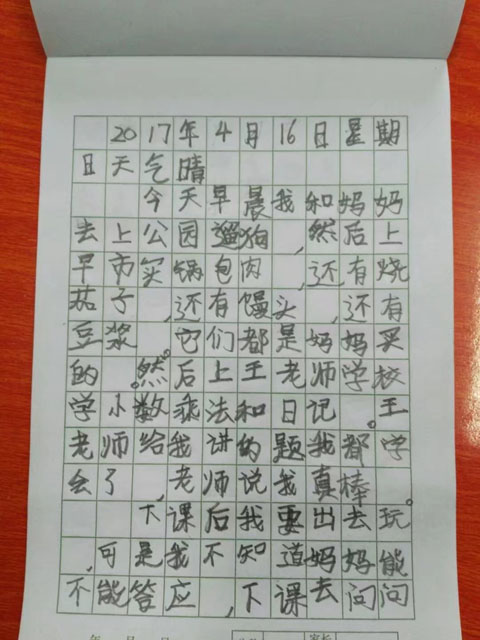 2017年4月16日星期
日天气晴
今天早晨我和妈妈
去上公园遛狗,然后上
早市买锅包肉,还有烧
茄子,还有馒头,还有
豆浆。它们都是妈妈买
的。然后上王老师学校
学小数乘法和日记。王
老师给我讲的题我都学
会了,老师说我真棒。
下课后我要出去玩
,可是我不知道妈妈能
不能答应,下课去问问
年 月 日
家长